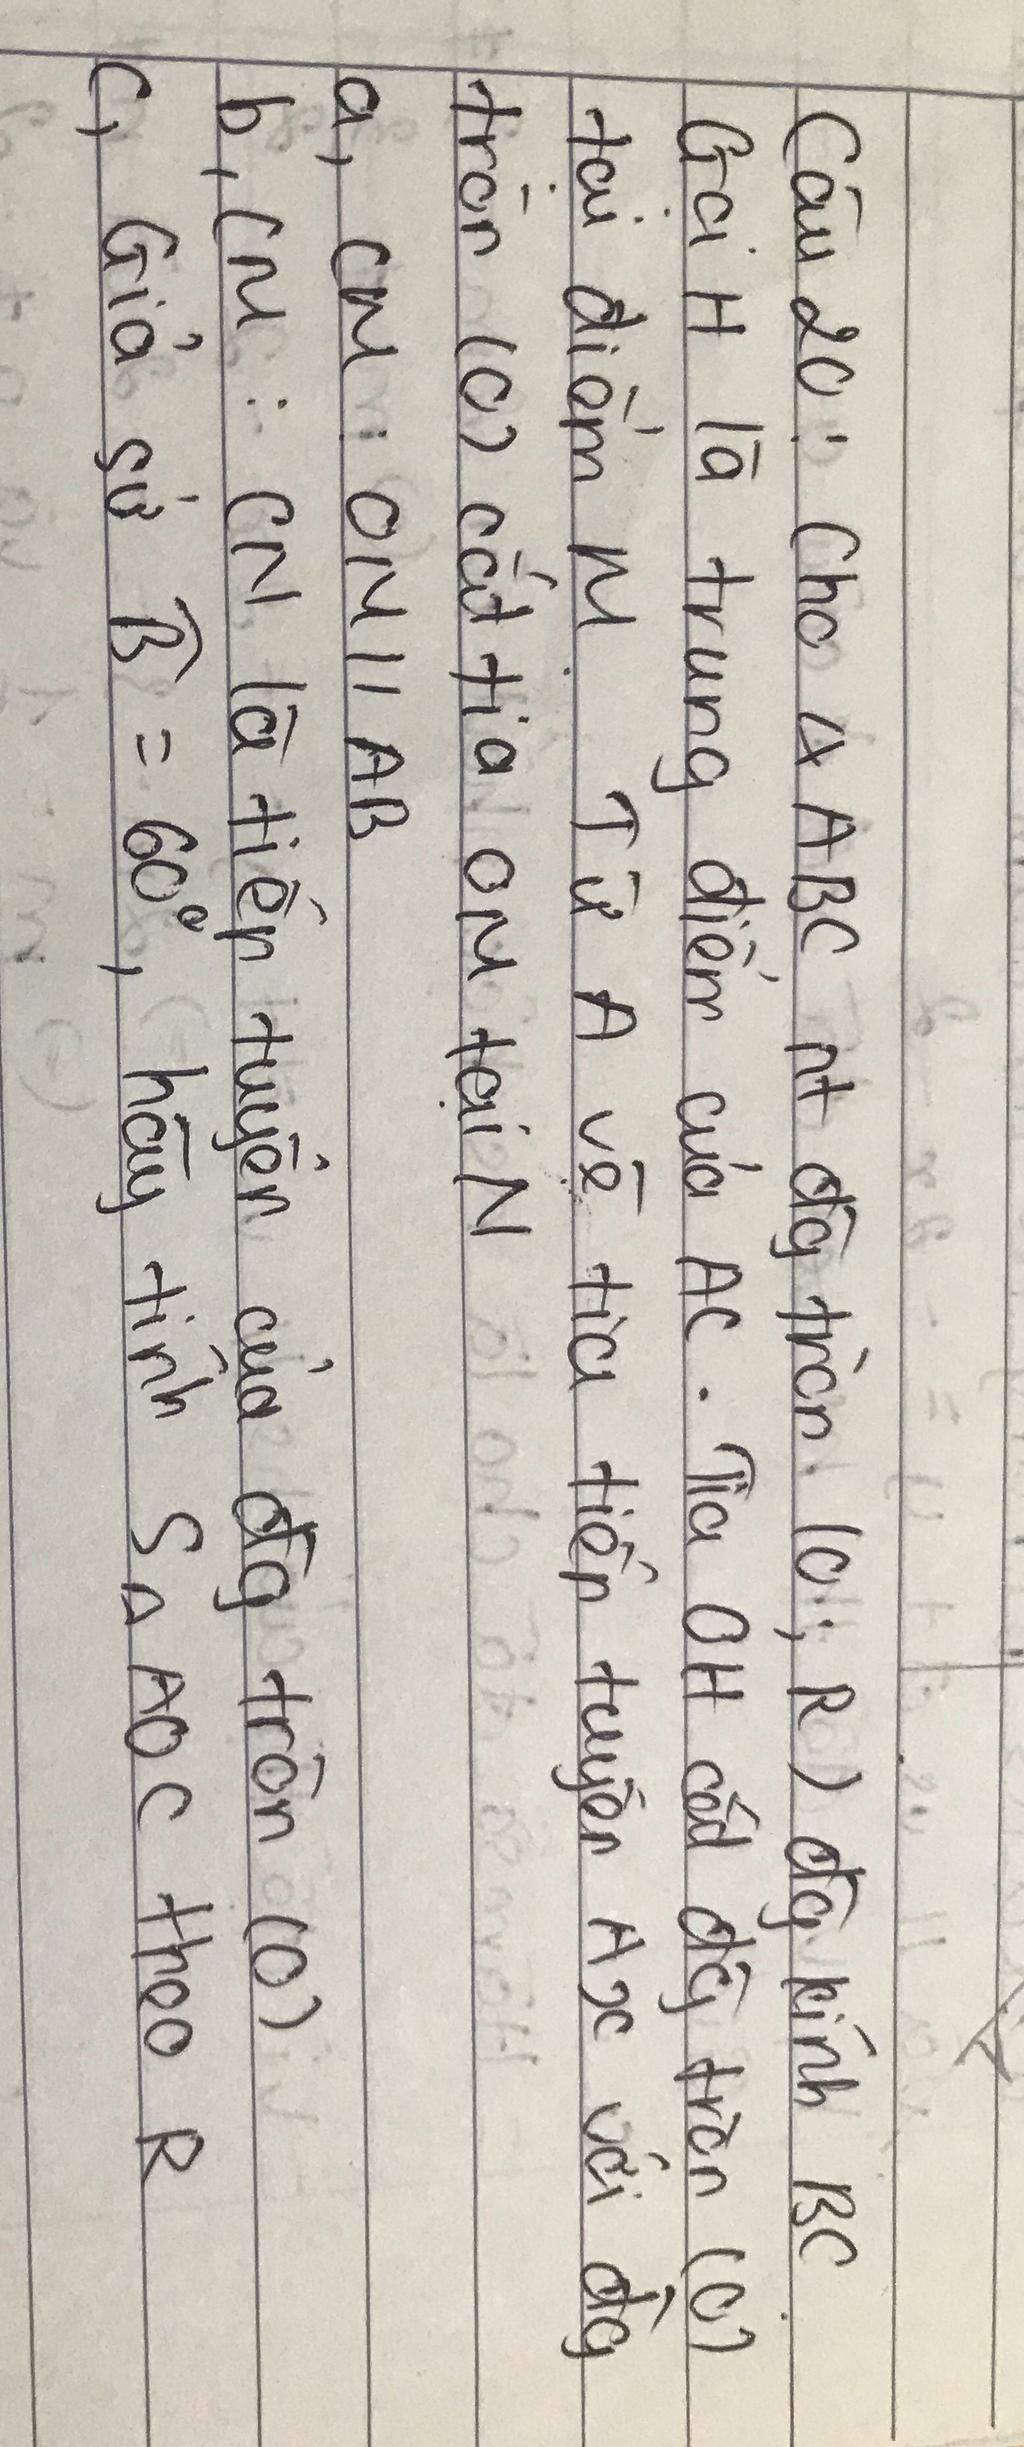 Câu 20: Cho △ ABC nt đg tròn (O; R) đg kính BC
Gọi H là trung điểm của AC. Tia OH cắt đg tròn (O)
tại điểm M. Từ A vẽ tia tiếp tuyến Ax với đg
tròn (O) cắt tia OM tại N
a, CM: OM // AB
b, CM: CN là tiếp tuyến của đg tròn (O)
c, Giả sử B̂ = 60°, hãy tính S△ AOC theo R